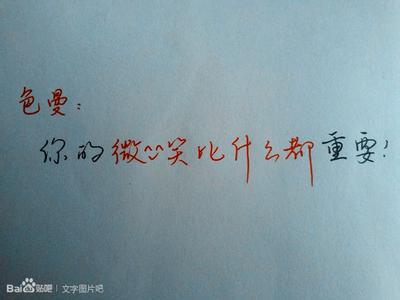 色曼：
你的微^^笑比什么都重要！
Bai贴吧｜文字图片吧